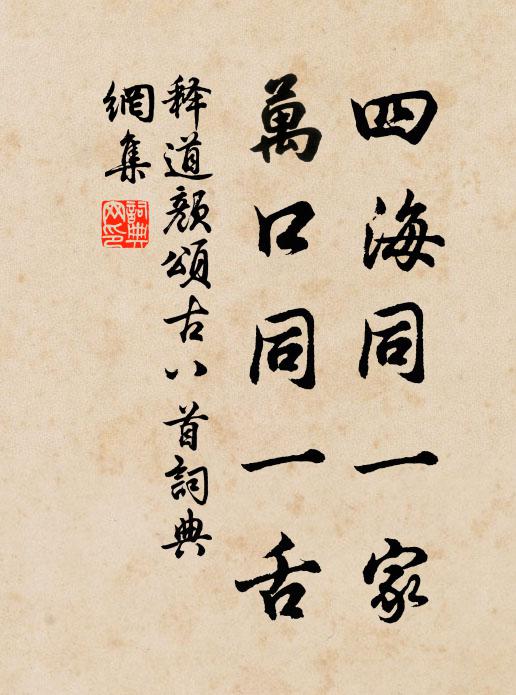 四海同一家
萬口同一舌
释道颜頌古八首詞典
網集
詞典
网印